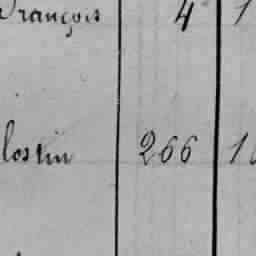 François 4 1
lostin 266 1